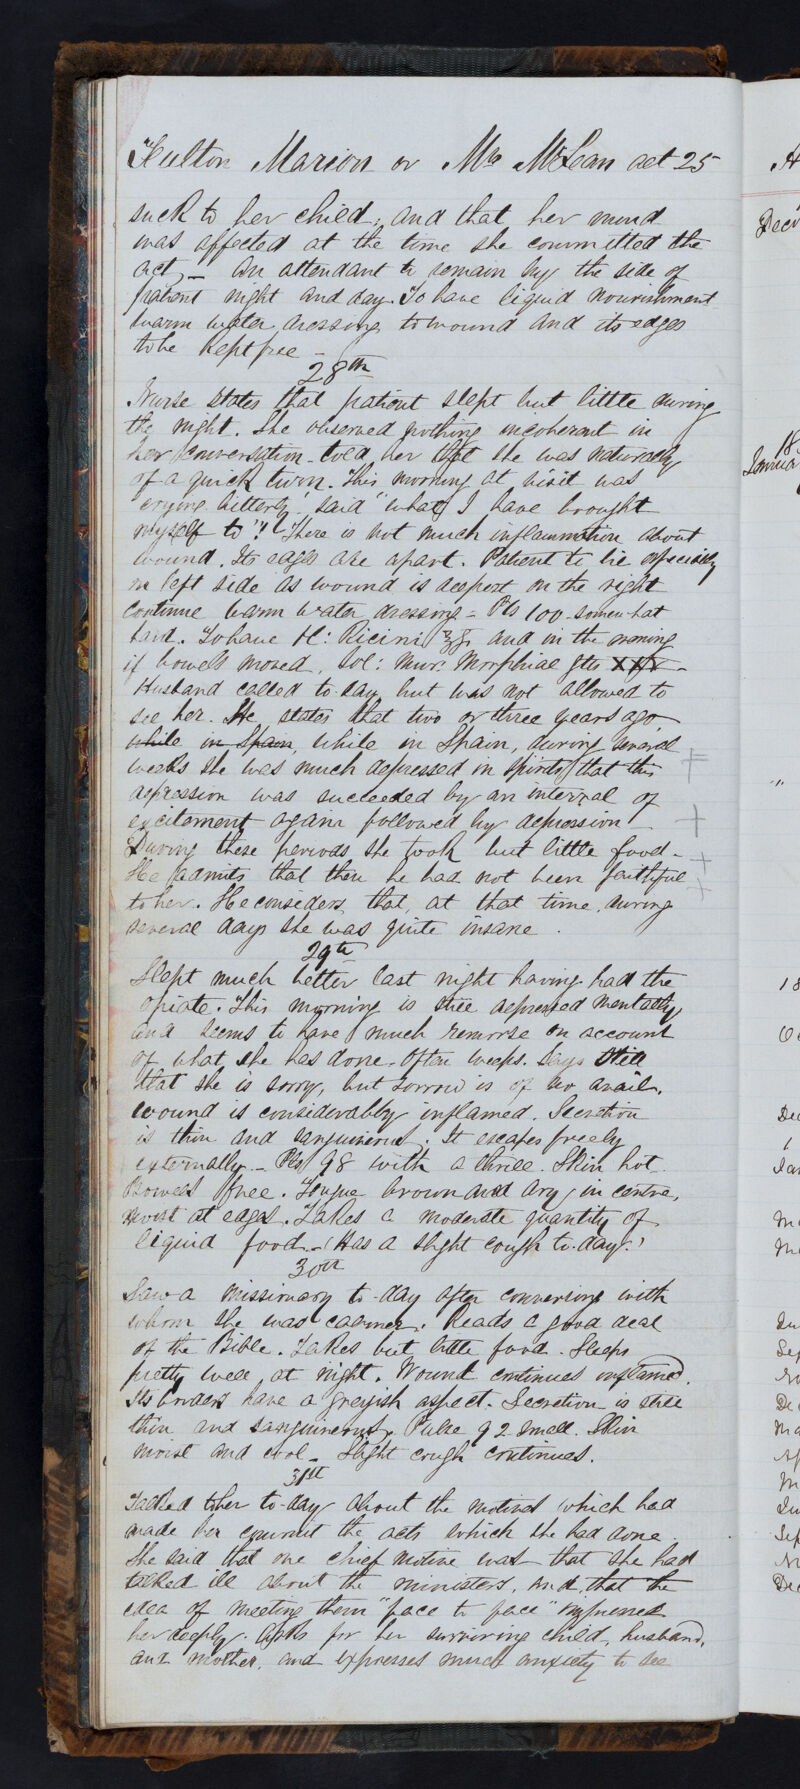 Fulton Marion or Mrs McLean aet 25
suck to her child; and that her mind
was affected at the time she committed the
act, – An attendant to remain by the side of
patient night and day. To have liquid nourishment
warm water dressing to wound and its edges
to be kept free –
28th
Nurse states that patient slept but little during
the night. She observed nothing incoherent in
her conversation – told her that she was naturally
of a quick turn. This morning at visit was
crying bitterly, said "what I have brought
myself to"! There is not much inflammation about
wound. Its edges are apart. Patient to lie especially
on left side as wound is deepest on the right
Continue warm water dressing – Pls 100 somewhat
hard. To have Ol: Ricini ℥j. and in the evening
if bowels moved, Sol: Mur. Morphiae gtts XXX –
Husband called to-day, but was not allowed to
see her. He states that two or three years ago
while in Spain, while in Spain, during several
weeks she was much depressed in spirits, that this
depression was succeeded by an interval of
excitement again followed by depression
During these periods she took but little food –
He admits that then he had not been faithful
to her. He considers that at that time, during
several days she was quite insane.
29th
Slept much better last night having had the
opiate. This morning is still depressed mentally
and seems to have much remorse on account
of what she has done. Often weeps. Says still
that she is sorry, but sorrow is of no avail.
Wound is considerably inflamed. Secretion
is thin and sanguineous. It escapes freely
externally – Pls 98 with a thrill. Skin hot.
Bowels free. Tongue brown and dry in centre,
moist at edges. Takes a moderate quantity of
liquid food – (Has a slight cough to-day.)
30th
Saw a missionary to-day after conversing with
whom she was calmer. Reads a good deal
of the Bible. Takes but little food. Sleeps
pretty well at night. Wound continues inflamed.
Its borders have a greyish aspect. Secretion is still
thin and sanguineous. Pulse 92 small. Skin
moist and cool – Slight cough continues.
31st
Talked to her to-day about the motives which had
made her commit the acts which she had done.
She said that one chief motive was that she had
talked ill about the ministers, and that the
idea of meeting them "face to face" impressed
her deeply. Asks for her surviving child, husband,
and mother, and expresses much anxiety to see